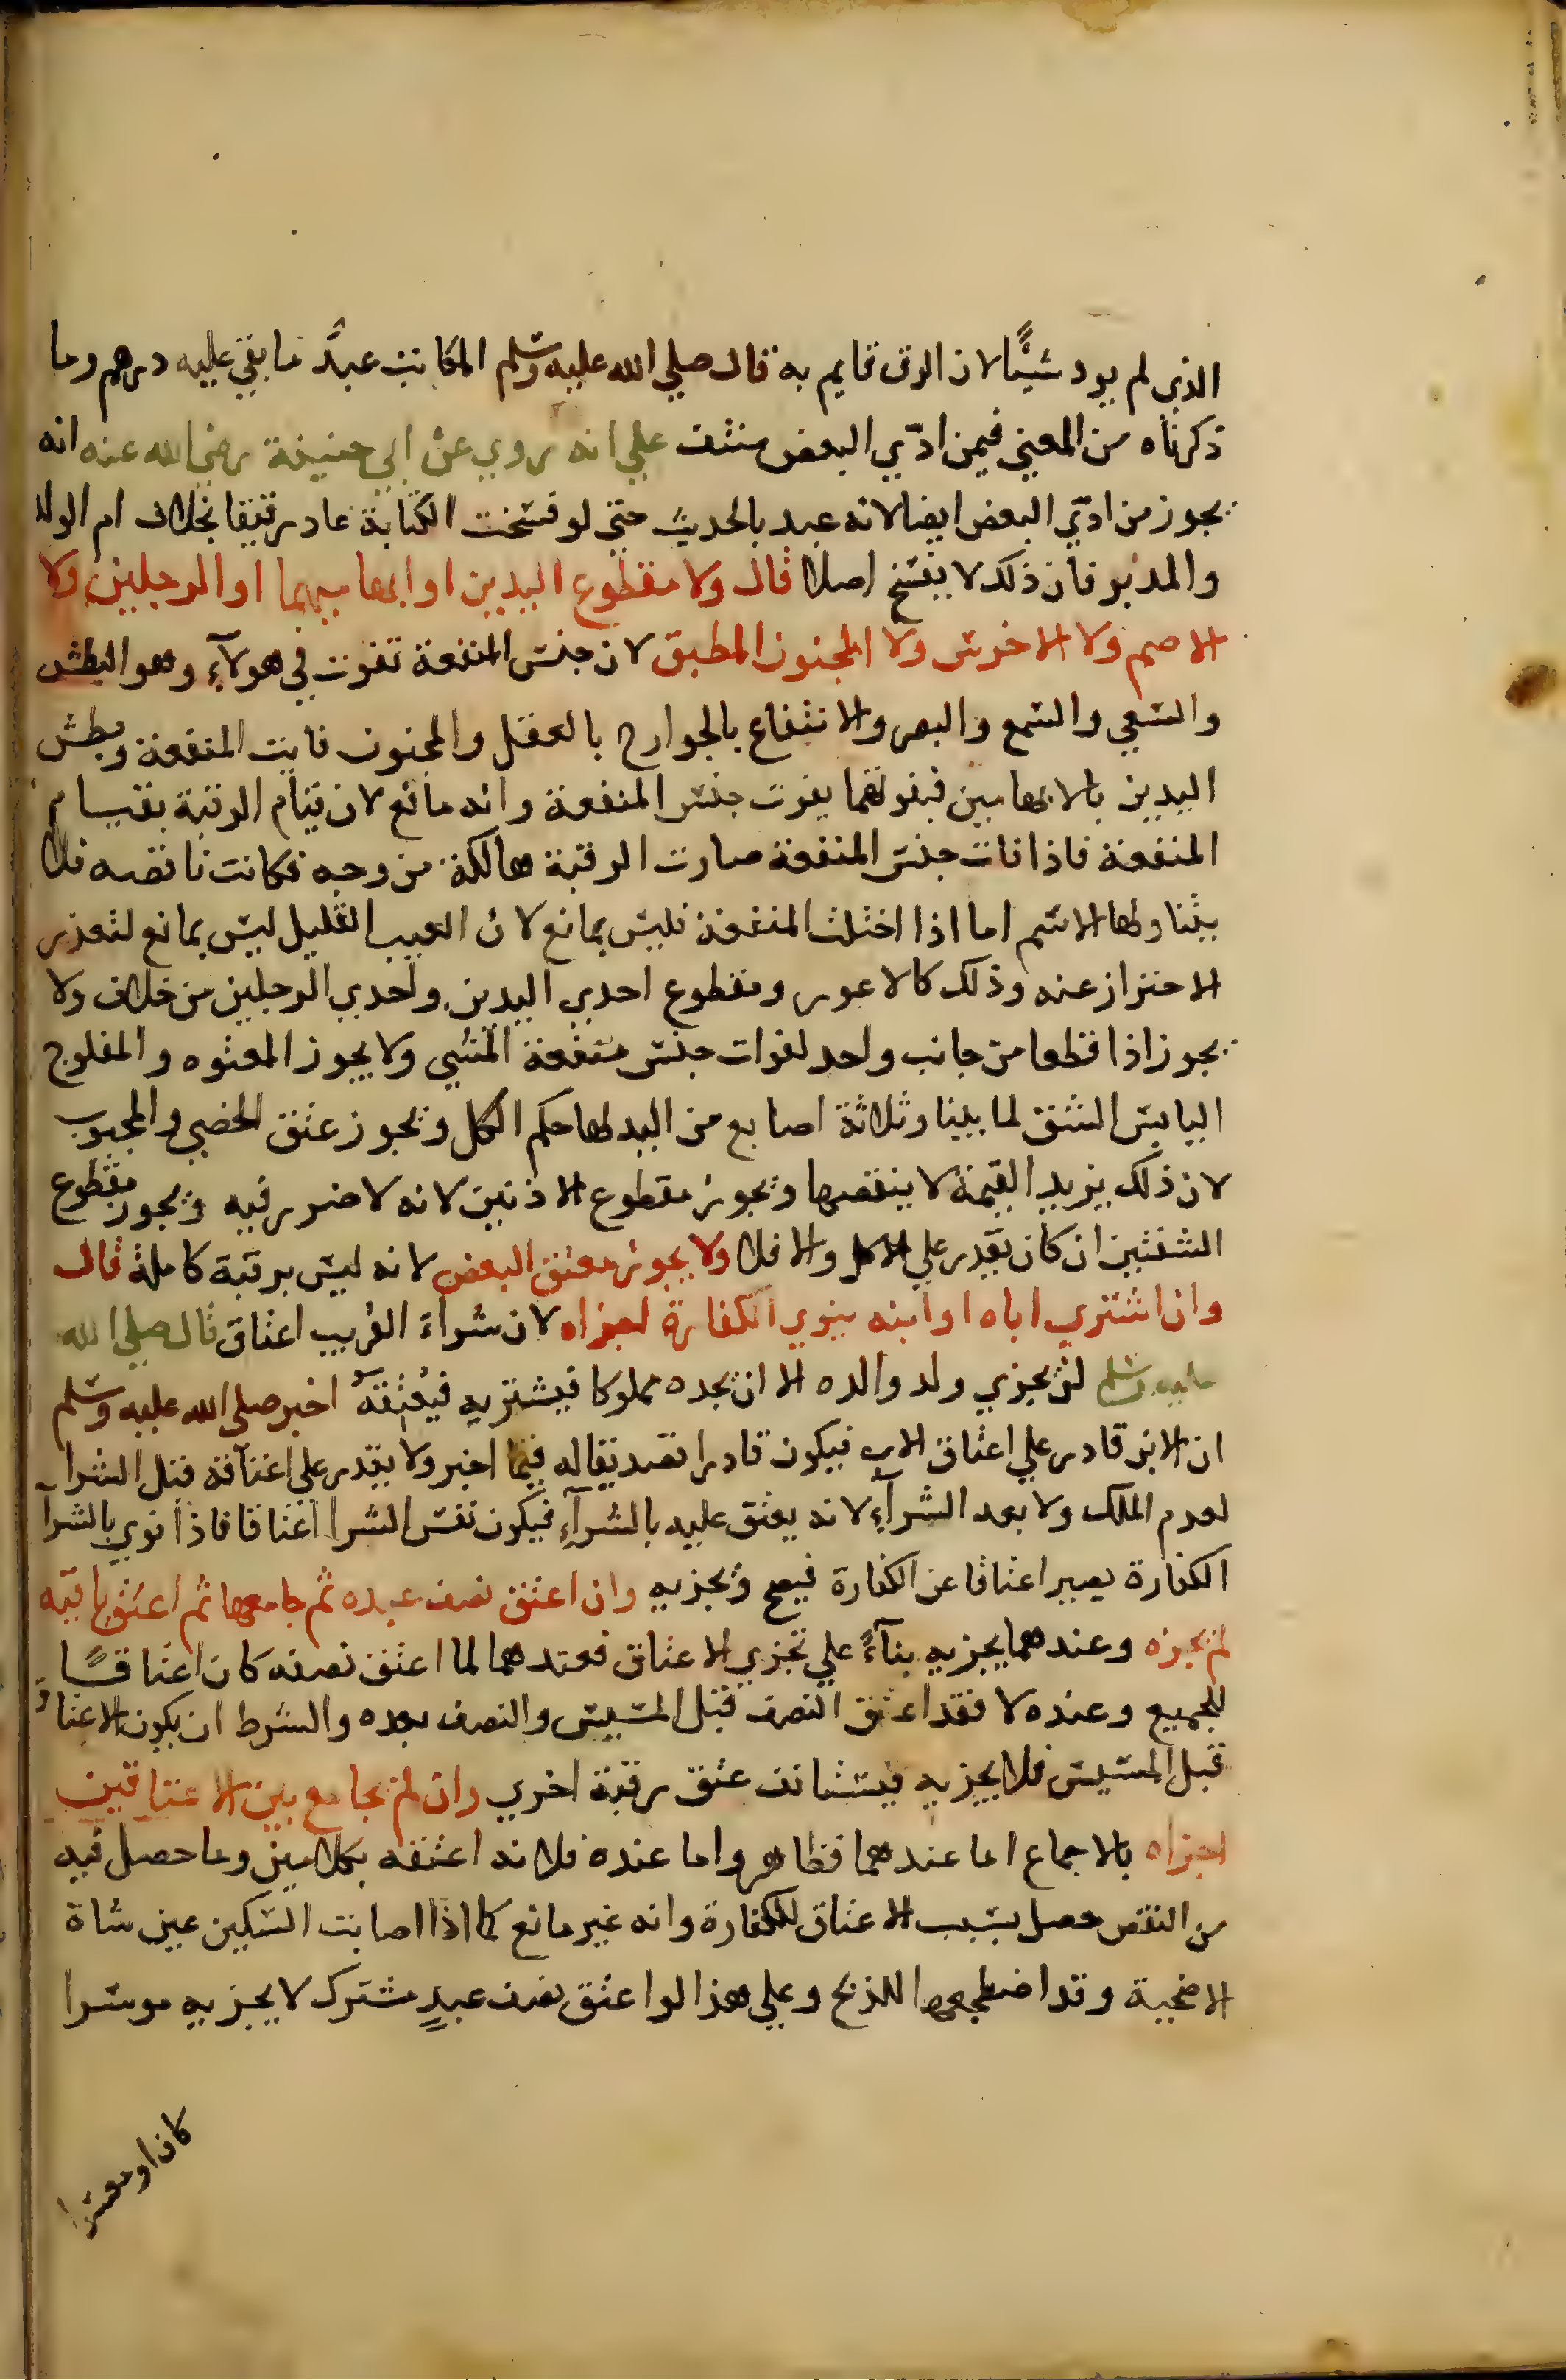 الذي لم يود شيئًا لان الرق قايم به قال صلي الله عليه وسلم المكاتب عبدٌ ما بقي عليه درهم وما
ذكرناه من المعني فيمن ادّي البعض منتف علي انه روي عن ابي حنيفة رضي الله عنه انه
يجوز من ادّي البعض ايضا لانه عبد بالحديث حتي لو فسخت الكتابة عاد رقيقا بخلاف ام الولد
والمدبر فان ذلك لا ينفسخ اصلا قال ولا مقطوع اليدين او ابهاميهما او الرجلين ولا
الاصم ولا الاخرس ولا المجنون المطبق لان جنس المنفعة تفوت في هولآء وهو البطش
والسعي والسمع والبصر والانتفاع بالجوارح بالعقل والمجنون فايت المنفعة وبطش
اليدين بالابهامين فبفوتهما يفوت جنس المنفعة وانه مانع لان قيام الرقبة بقيام
المنفعة فاذا فات جنس المنفعة صارت الرقبة هالكة من وجه فكانت ناقصه فلا
يتناولها الاسم اما اذا اختلت المنفعة فليس بمانع لان العيب القليل ليس بمانع لتعذر
الاحتراز عنه وذلك كالاعور ومقطوع احدي اليدين واحدي الرجلين من خلاف ولا
يجوز اذا قطعا من جانب واحد لفوات جنس منفعة المشي ولا يجوز المعتوه والمفلوج
اليابس الشق لما بينا وثلاثة اصابع من اليد لها حكم الكل ويجوز عتق الخصي والمجبوب
لان ذلك يزيد القيمة لا ينقصها ويجوز مقطوع الاذنين لانه لا ضرر فيه ويجوز مقطوع
الشفتين ان كان يقدر علي الاكل والا فلا ولا يجوز معتق البعض لانه ليس برقبة كاملة قال
وان اشتري اباه او ابنه ينوي الكفارة اجزاه لان شراء القريب اعتاق قال صلي الله
عليه وسلم لن يجزي ولد والده الا ان يجده مملوكا فيشتريه فيعتقه اخبر صلي الله عليه وسلم
ان الابن قادر علي اعتاق الاب فيكون قادرا تصديقا له فيما اخبر ولا يقدر علي اعتاقه قبل الشرا
لعدم الملك ولا بعد الشرآء لانه يعتق عليه بالشرآء فيكون نفس الشرا اعتاقا فاذا نوي بالشرآ
الكفارة يصير اعتاقا عن الكفارة فيصح ويجزيه وان اعتق نصف عبده ثم جامعها ثم اعتق باقيه
لم يجزه وعندهما يجزيه بنآءً علي تجزي الاعتاق فعندهما لما اعتق نصفه كان اعتاقًا
للجميع وعنده لا فقد اعتق النصف قبل المسيس والنصف بعده والشرط ان يكون الاعتاق
قبل المسيس فلا يجزيه فيستانف عتق رقبة اخري وان لم يجامع بين الاعتاقين
اجزاه بالاجماع اما عندهما فظاهر واما عنده فلانه اعتقه بكلامين وما حصل فيه
من النقص حصل بسبب الاعتاق للكفارة وانه غير مانع كما اذا اصابت السكين عين شاة
الاضحية وقد اضطجعها للذبح وعلي هذا لو اعتق نصف عبدٍ مشترك لا يجزيه موسرا
كان او معسرا